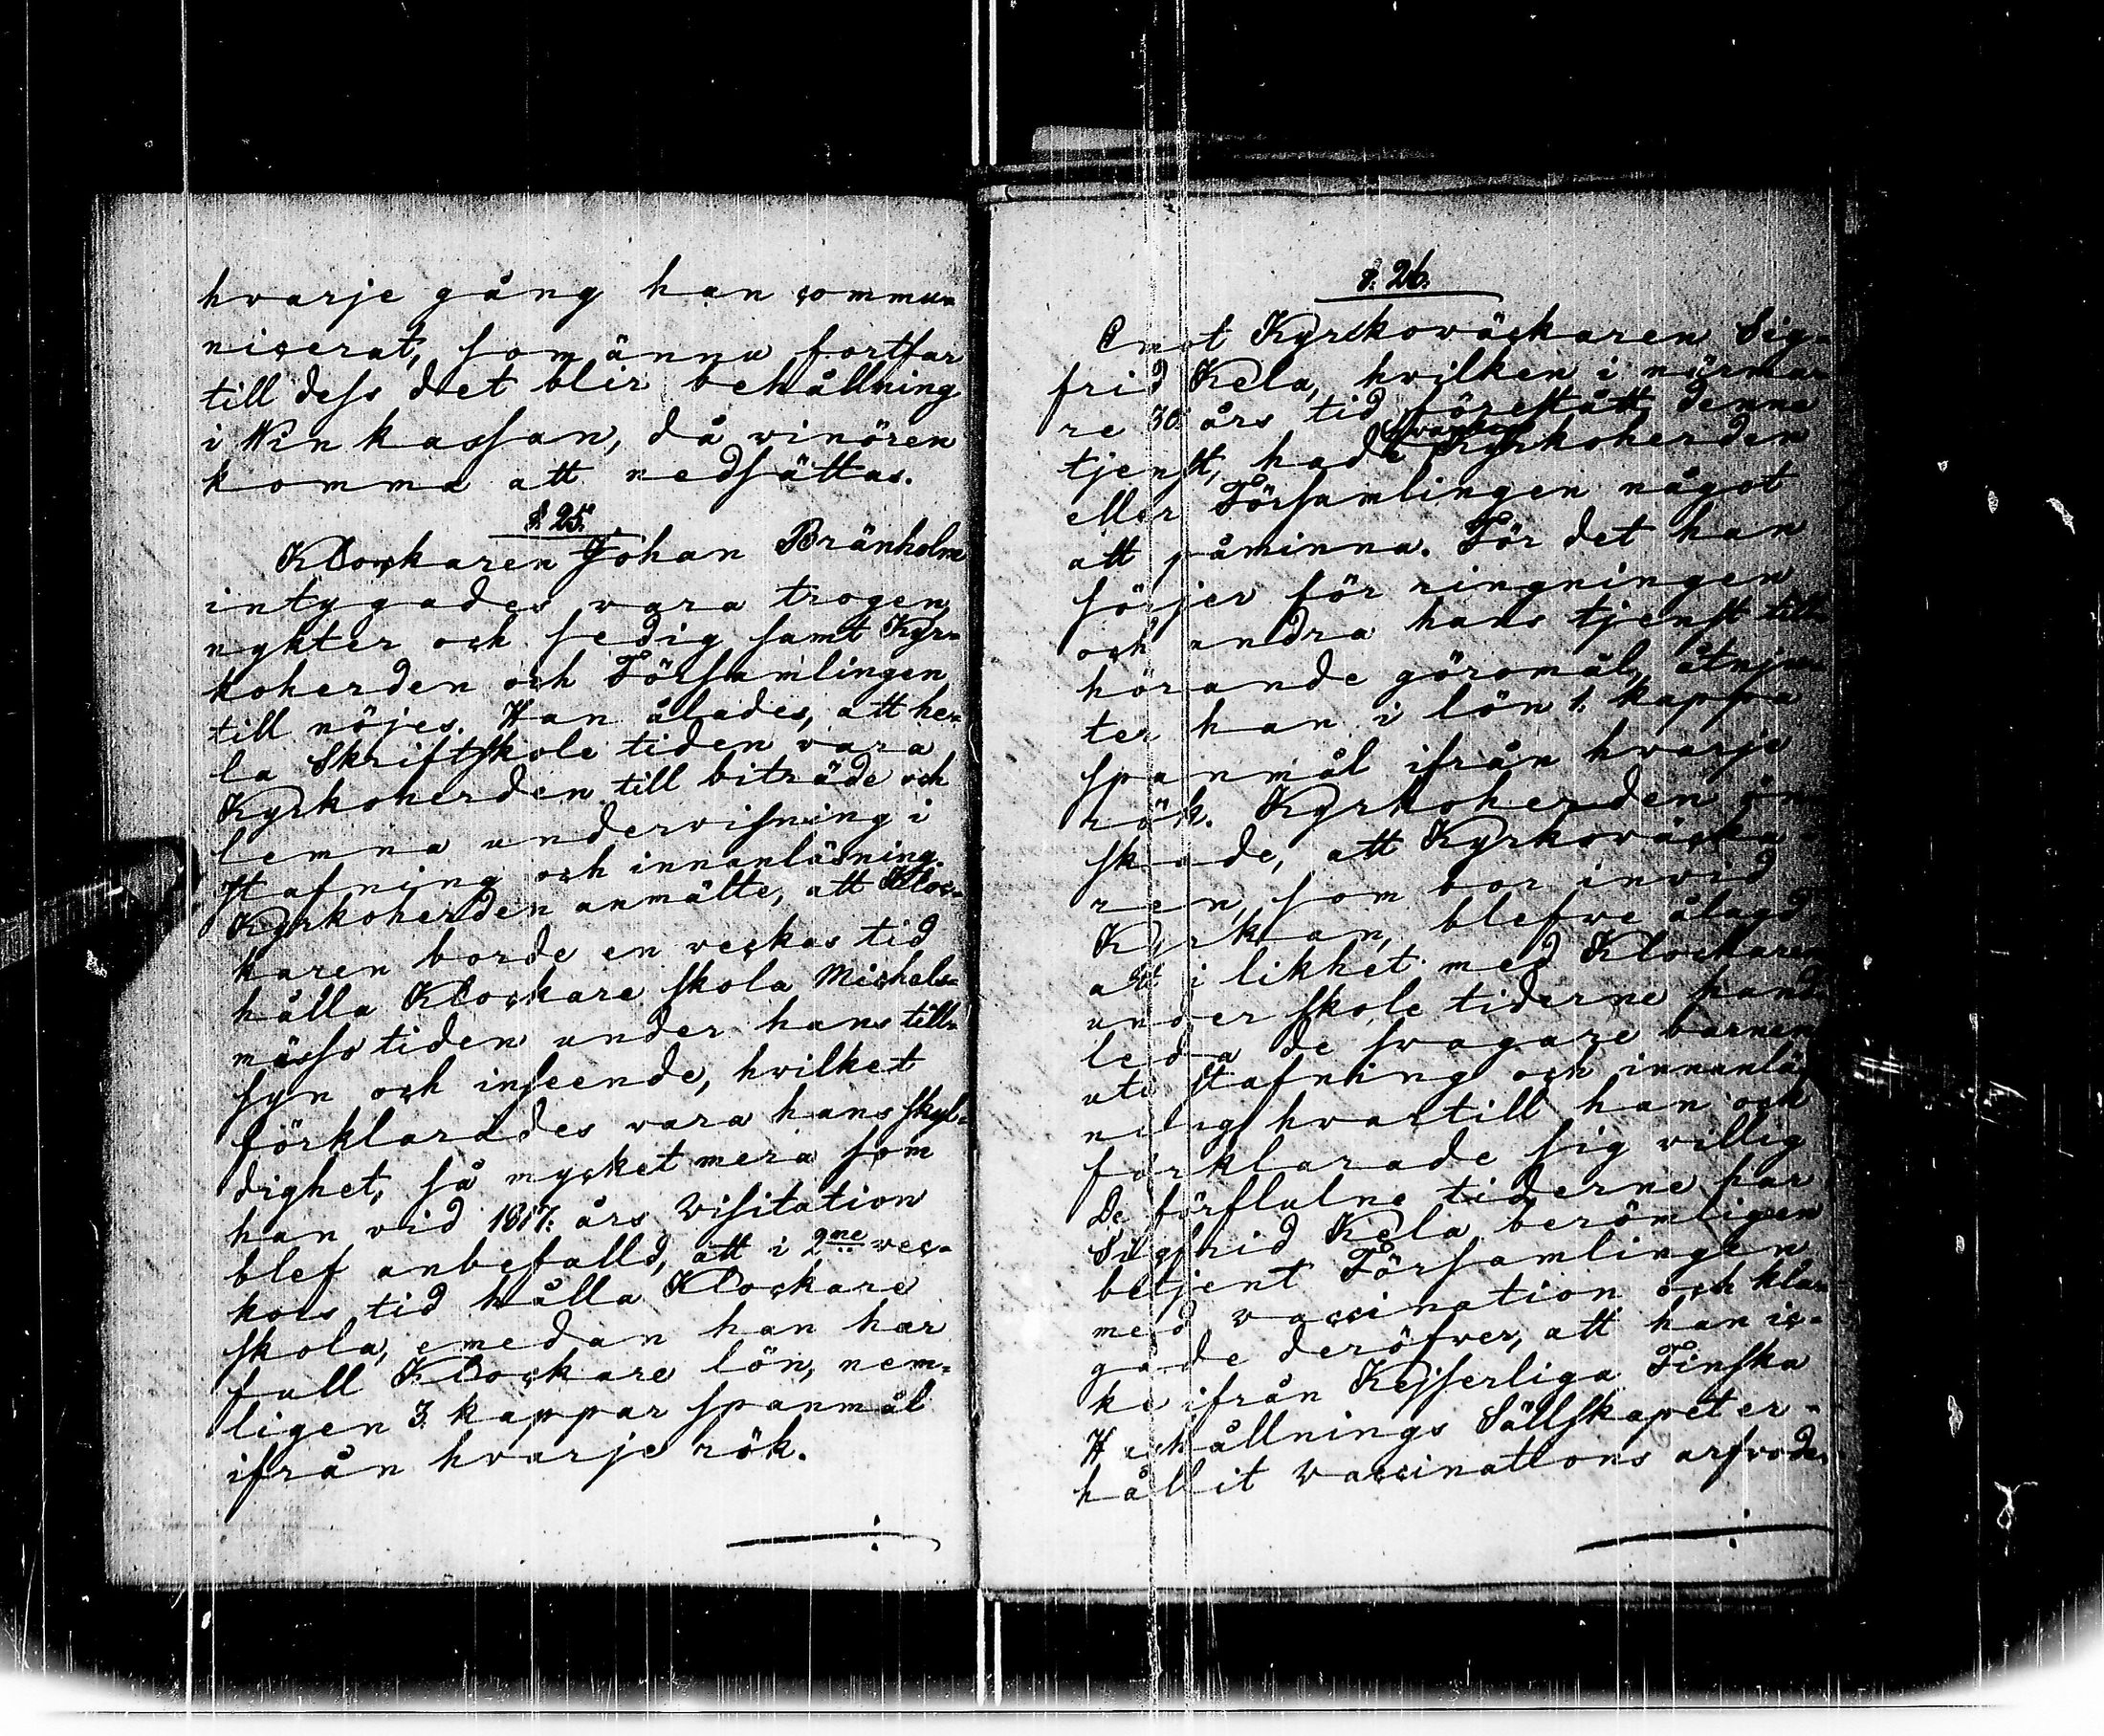 hvarje gång han commu-
nicerat, som ännu fortfar
till dess det blir behållning
i Win kassan, då vinören
komma att nedsättas.
§. 25.
Klockaren Johan Bränholm
intygades vara trogen,
nykter och sedig samt Kyr-
koherden och Församlingen
till nöjes. Han ålades, att he-
la Skriftskole tiden vara
Kyrkoherden till biträde och
lemna undervisning i
stafning och innanläsning.
Kyrkoherden anmälte, att Kloc-
karen borde en veckas tid
hålla Klockare skola Michels-
mässo tiden under hans till-
syn och inseende, hvilket
förklarades vara hans skyl-
dighet, så mycket mera som
han vid 1817: års Visitation
blef anbefalld, att i 2ne vec-
kors tid hålla Klockare
skola, emedan han har
full Klockare lön, nem-
ligen 3. kappar spanmål
ifrån hvarje rök.
§. 26.
Emot Kyrkoväckaren Sig-
frid Kela, hvilken i närma-
re 30 års tid förestått denna
tjenst, hade hvarken Kyrkoherden
eller Församlingen något
att påminna. För det han
sörjer för ringningen
och andra hans tjenst till-
hörande göromål, åtnju-
ter han i lön 1. kappa
spanmål ifrån hvarje
rök. Kyrkoherden ön-
skade, att Kyrkoväcka-
ren, som bor invid
Kyrkan, blefve ålagd
att i likhet med Klockaren
under skole tiderne hand-
leda de svagare barnen
uti stafning och innanläs-
ning hvartill han ock
förklarade sig villig
De förflutne tiderne har
Sigfrid Kela berömligen
betjent Församlingen
med vaccination och kla-
gade deröfver, att han ic-
ke ifrån Kejserliga Finska
Hushållnings Sällskapet er-
hållit Vaccinations arfvode